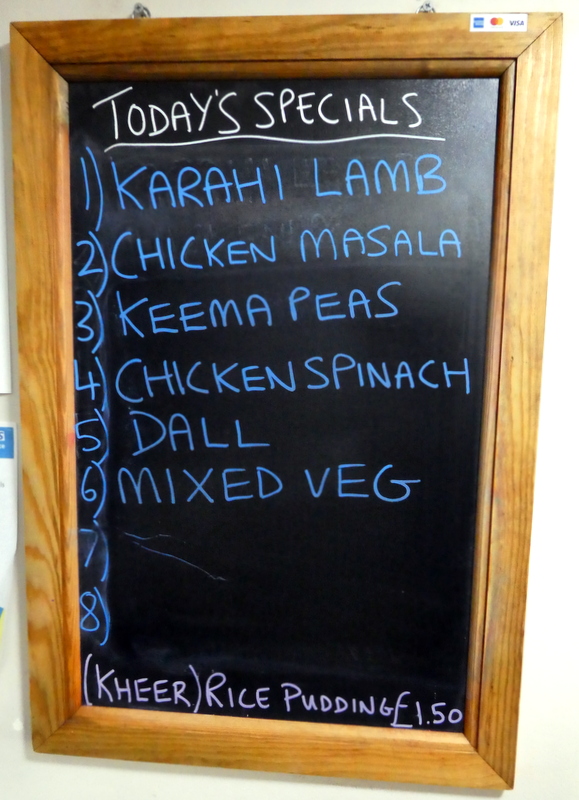 VISA
TODAY'S SPECIALS
1) KARAHI LAMB
2) CHICKEN MASALA
3) KEEMA PEAS
4) CHICKEN SPINACH
5) DALL
6) MIXED VEG
7)
8)
(KHEER) RICE PUDDING £1.50